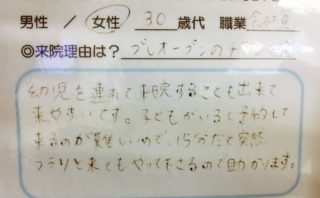 男性 / 女性 30 歳代 職業 会社員
◎来院理由は? プレオープンのチラシ
幼児を連れて来院することも出来て
来やすいです。子どもがいると予約して
来るのが難しいので、15分だと突然
フラリと来てもやって下さるので助かります。